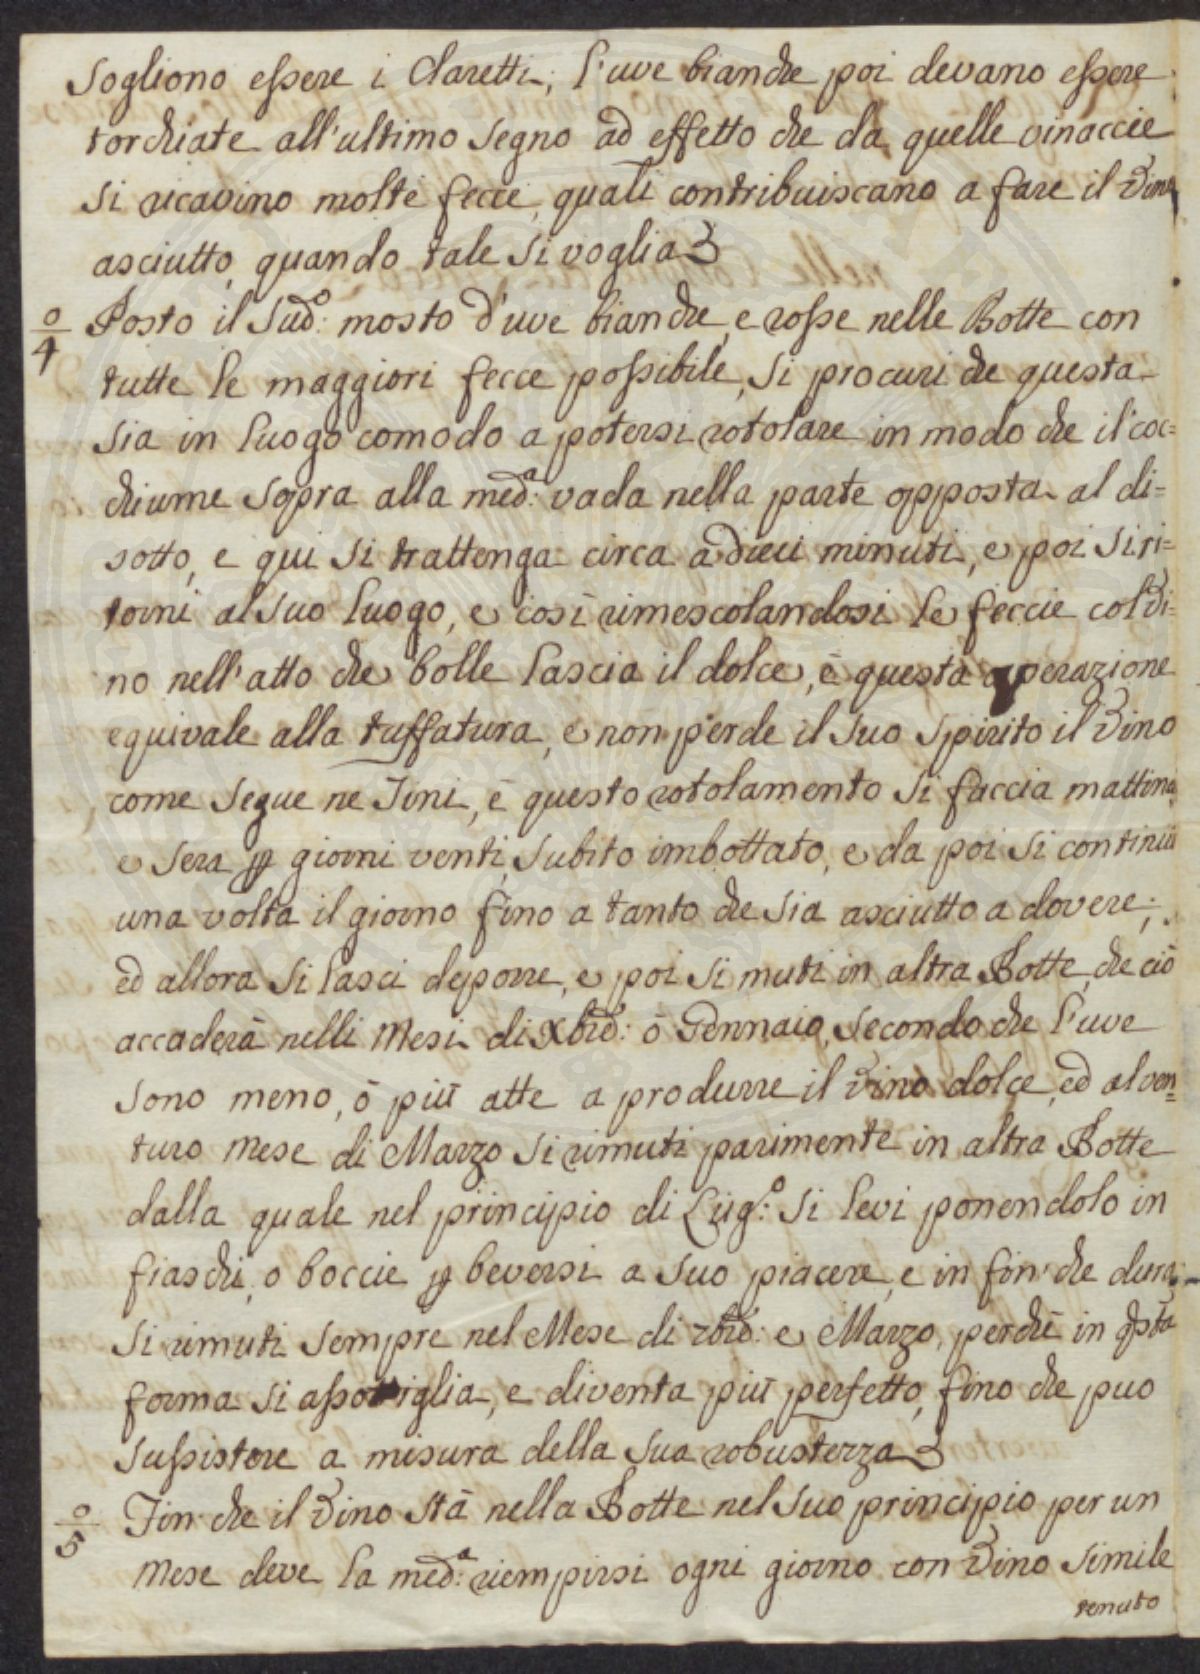 sogliono essere i Claretti, l'uve bianche poi devano essere
torchiate all'ultimo segno ad effetto che da quelle vinaccie
si ricavino molte fecce, quali contribuiscano a fare il Vino
asciutto, quando tale si voglia
0/4 Posto il Sud.º mosto d'uve bianche, e rosse nelle Botte con
tutte le maggiori fecce possibile, si procuri che questa
sia in luogo comodo a potersi rotolare in modo che il coc=
chiume sopra alla med.ª vada nella parte opposta al di=
sotto, e qui si trattenga circa a dieci minuti, e poi si ri=
torni al suo luogo, e così rimescolandosi le feccie col Vi=
no nell'atto che bolle lascia il dolce, è questa operazione
equivale alla tuffatura, e non perde il suo spirito il Vino
come segue ne Tini, è questo rotolamento si faccia mattina,
e sera p giorni venti, subito imbottato, e da poi si continui
una volta il giorno fino a tanto che sia asciutto a dovere;
ed allora si lasci deporre, e poi si muti in altra Botte, che ciò
accaderà nelli Mesi di Xbre: ò Gennaio, secondo che l'uve
sono meno, ò più atte a produrre il Vino dolce, ed al ven=
turo Mese di Marzo si rimuti parimente in altra Botte
dalla quale nel principio di Lug.º si levi ponendolo in
fiaschi, o boccie p beversi a suo piacere, e in fin che dura
si rimuti sempre nel Mese di 7bre: e Marzo, perchè in qsta
forma si assottiglia, e diventa più perfetto, fino che puo
sussistere a misura della sua robustezza
0/5 Fin che il Vino stà nella Botte nel suo principio per un
Mese deve la med.ª riempirsi ogni giorno con Vino simile
tenuto